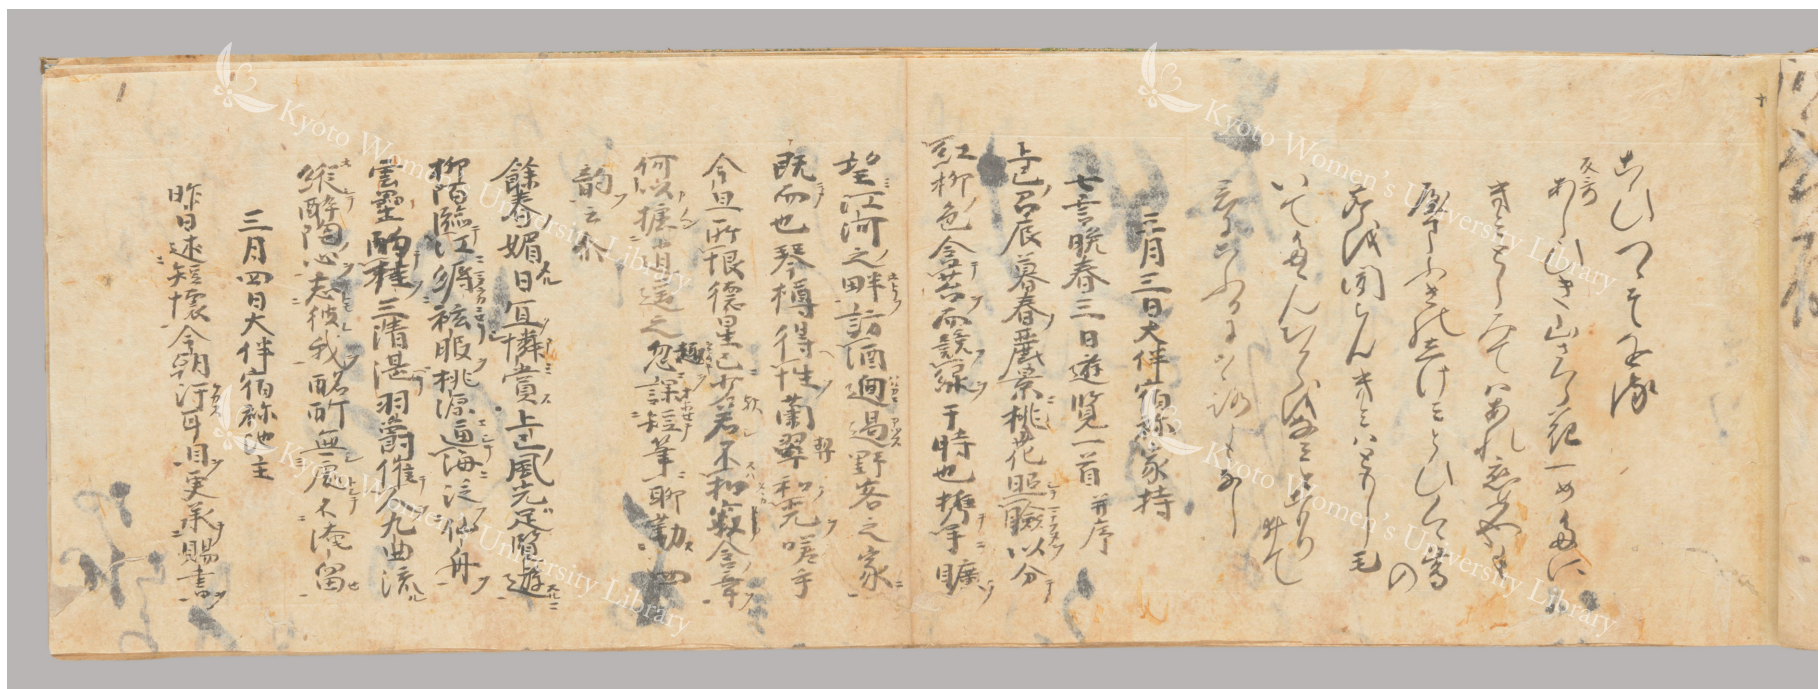 こひつゝそをる
反哥
あしひき山さくら花一めたに
きみとしみてはあれこひめやも
山ふきのしけみとひくゝ鴬の
こゑを聞らんきみはともしも
いてたゝんちからをなみとこもりゐて
きみにこふるに心ともなし
三月三日大伴宿祢家持
七言晩春三日遊覽一首 并序
上巳名辰暮春麗景桃花照瞼以分
紅柳色含苔而競緑于時也携手曠
望江河之畔訪酒迥過野客之家
既而也琴樽得性蘭契和光嗟乎
今日所恨德星已少若不扣寂含章
何以攄逍遥之趣忽課短筆聊勒四
韻云尓
餘春媚日宜憐賞上巳風光足覽遊
柳陌臨江縟袨服桃源通海泛仙舟
雲罍酌桂三清湛羽爵催人九曲流
縱醉陶心忘彼我酩酊無處不淹留
三月四日大伴宿祢池主
昨日述短懷今朝汙耳目更承賜書